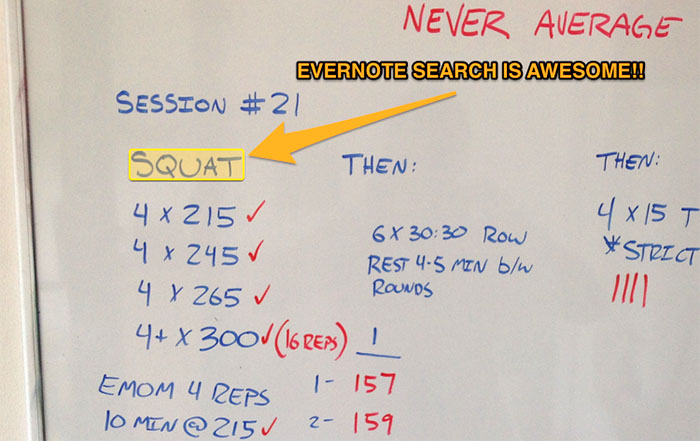 NEVER AVERAGE
EVERNOTE SEARCH IS AWESOME!!
SESSION #21
SQUAT
4 x 215 ✓
4 x 245 ✓
4 x 265 ✓
4+ x 300 ✓ (16 REPS)
EMOM 4 REPS
10 MIN @ 215 ✓
THEN:
6 x 30:30 ROW
REST 4-5 MIN b/w
ROUNDS
1
1- 157
2- 159
THEN:
4 x 15 T
*STRICT
||||